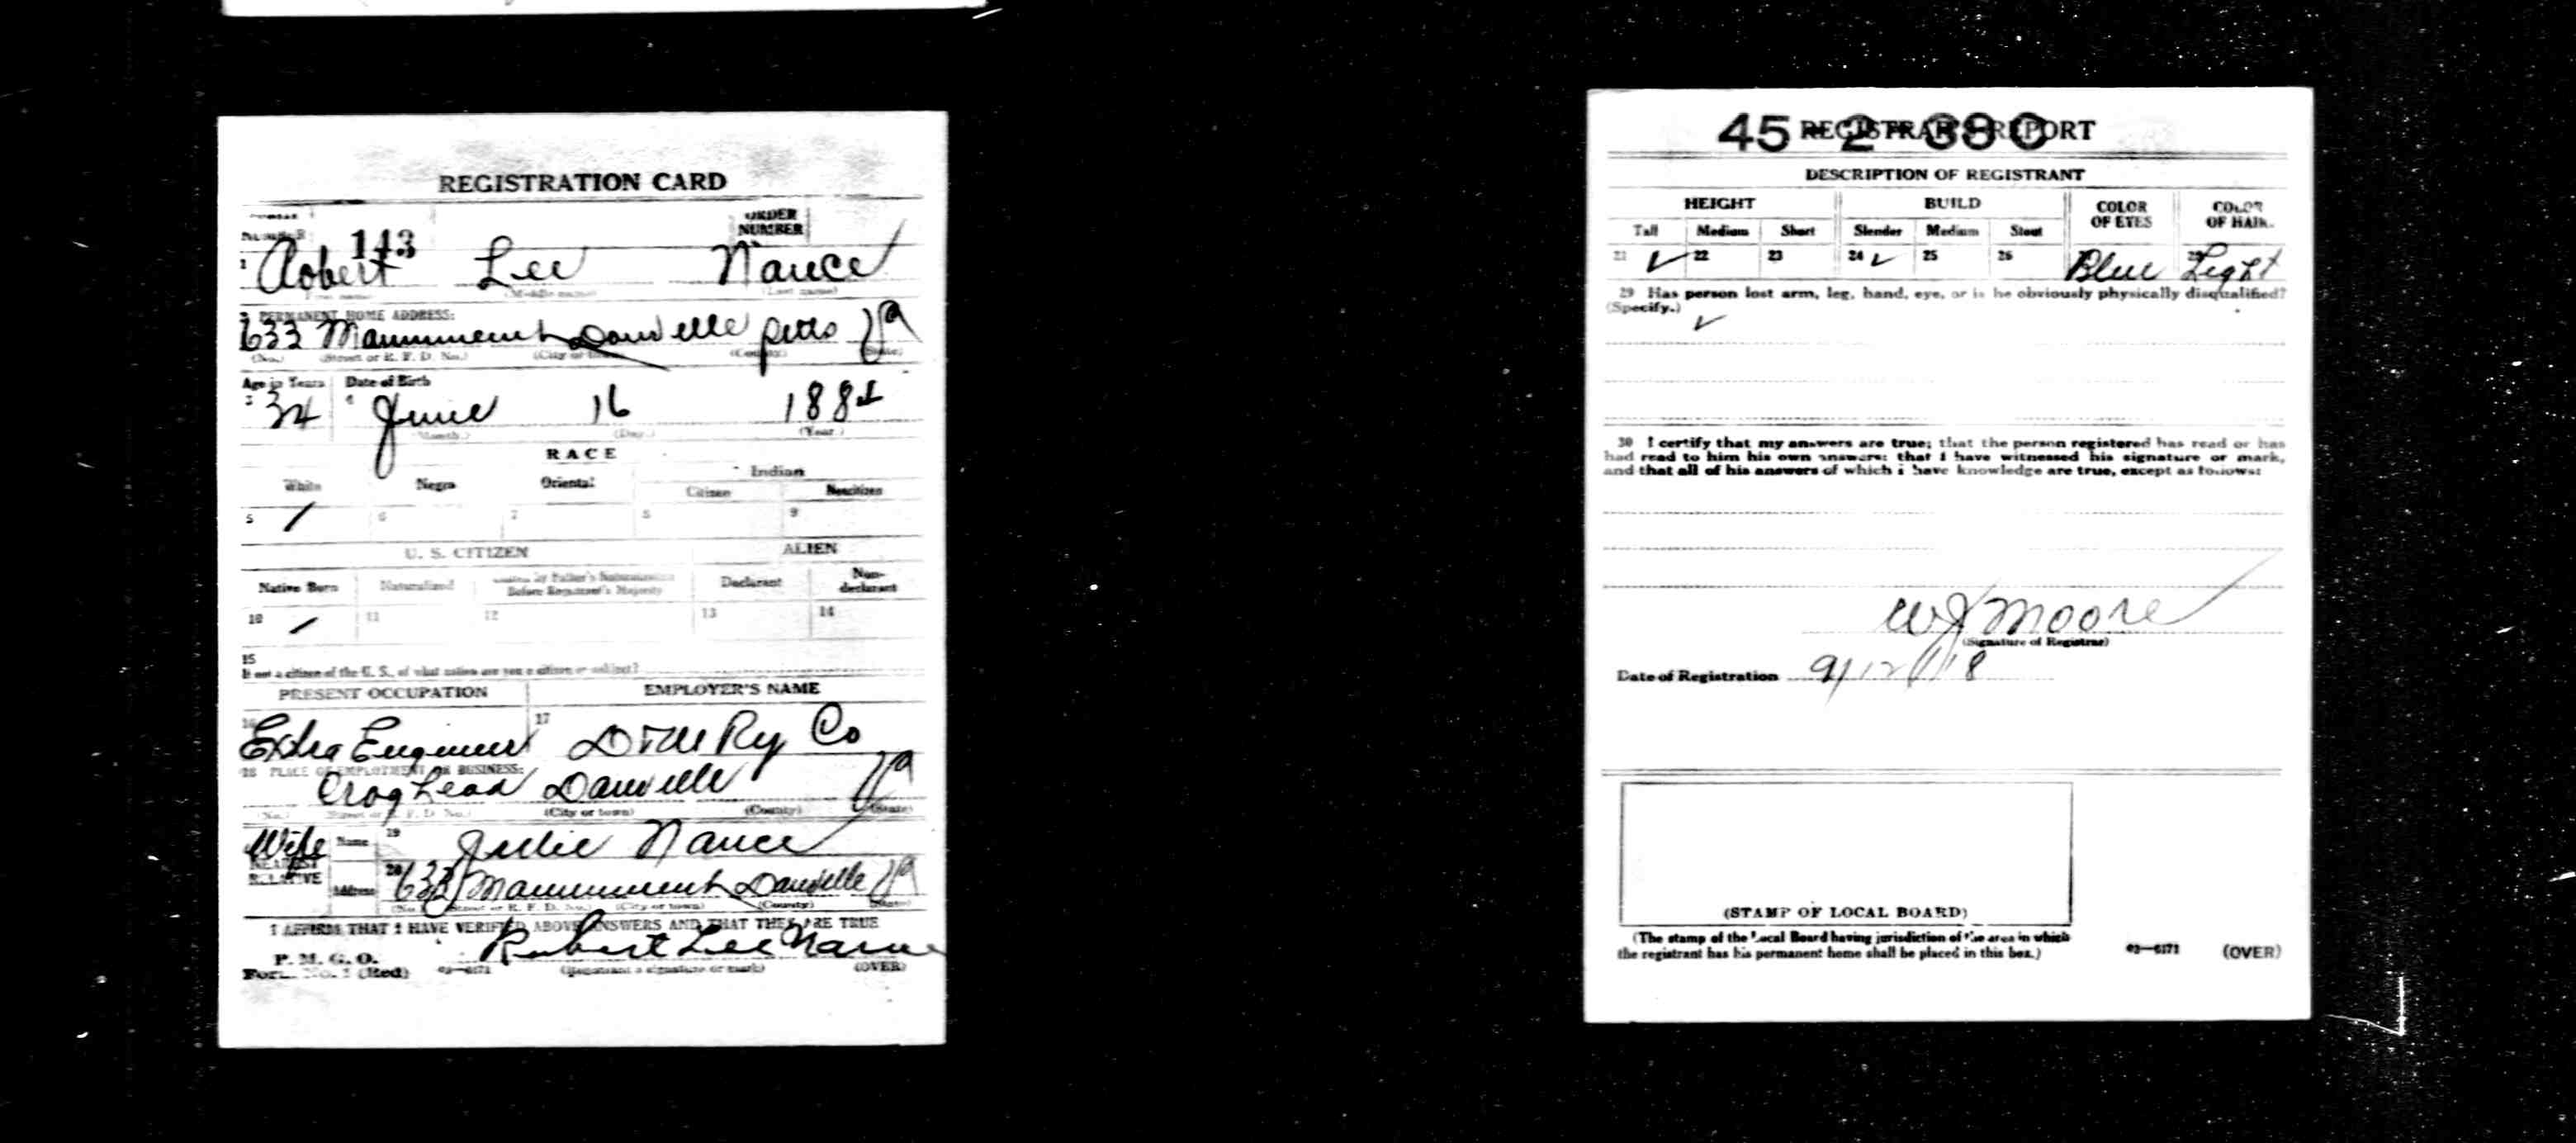 REGISTRATION CARD
NUMBER 143 ORDER NUMBER
1 Robert Lee Nance
(First name) (Middle name) (Last name)
2 PERMANENT HOME ADDRESS:
633 Manument Danville Pitts Va
(No.) (Street or R. F. D. No.) (City or town) (County) (State)
Age in Years Date of Birth
3 34 4 June 16 1884
(Month.) (Day.) (Year.)
RACE
White Negro Oriental Indian
Citizen Noncitizen
5 / 6 7 8 9
U. S. CITIZEN ALIEN
Native Born Naturalized Citizen by Father's Naturalization Before Registrant's Majority Declarant Non-declarant
10 / 11 12 13 14
15
If not a citizen of the U. S., of what nation are you a citizen or subject?
PRESENT OCCUPATION EMPLOYER'S NAME
16 Extra Engineer 17 D & W Ry Co
18 PLACE OF EMPLOYMENT OR BUSINESS:
Craghead Danville Va
(No.) (Street or R. F. D. No.) (City or town) (County) (State)
Wife Name 19 Julie Nance
NEAREST RELATIVE
Address 20 633 Manument Danville Va
(No.) (Street or R. F. D. No.) (City or town) (County) (State)
I AFFIRM THAT I HAVE VERIFIED ABOVE ANSWERS AND THAT THEY ARE TRUE
P. M. G. O.
Form No. 1 (Red) 03—6171 Robert Lee Nance
(Registrant's signature or mark) (OVER)
45 2 390
REGISTRAR'S REPORT
DESCRIPTION OF REGISTRANT
HEIGHT BUILD COLOR OF EYES COLOR OF HAIR
Tall Medium Short Slender Medium Stout
21 ✓ 22 23 24 ✓ 25 26 Blue 28 Light
29 Has person lost arm, leg, hand, eye, or is he obviously physically disqualified?
(Specify.)
✓
30 I certify that my answers are true; that the person registered has read or has
had read to him his own answers; that I have witnessed his signature or mark,
and that all of his answers of which I have knowledge are true, except as follows:
W J Moore
(Signature of Registrar)
Date of Registration 9/12/18
(STAMP OF LOCAL BOARD)
(The stamp of the Local Board having jurisdiction of the area in which
the registrant has his permanent home shall be placed in this box.)
03—6171 (OVER)